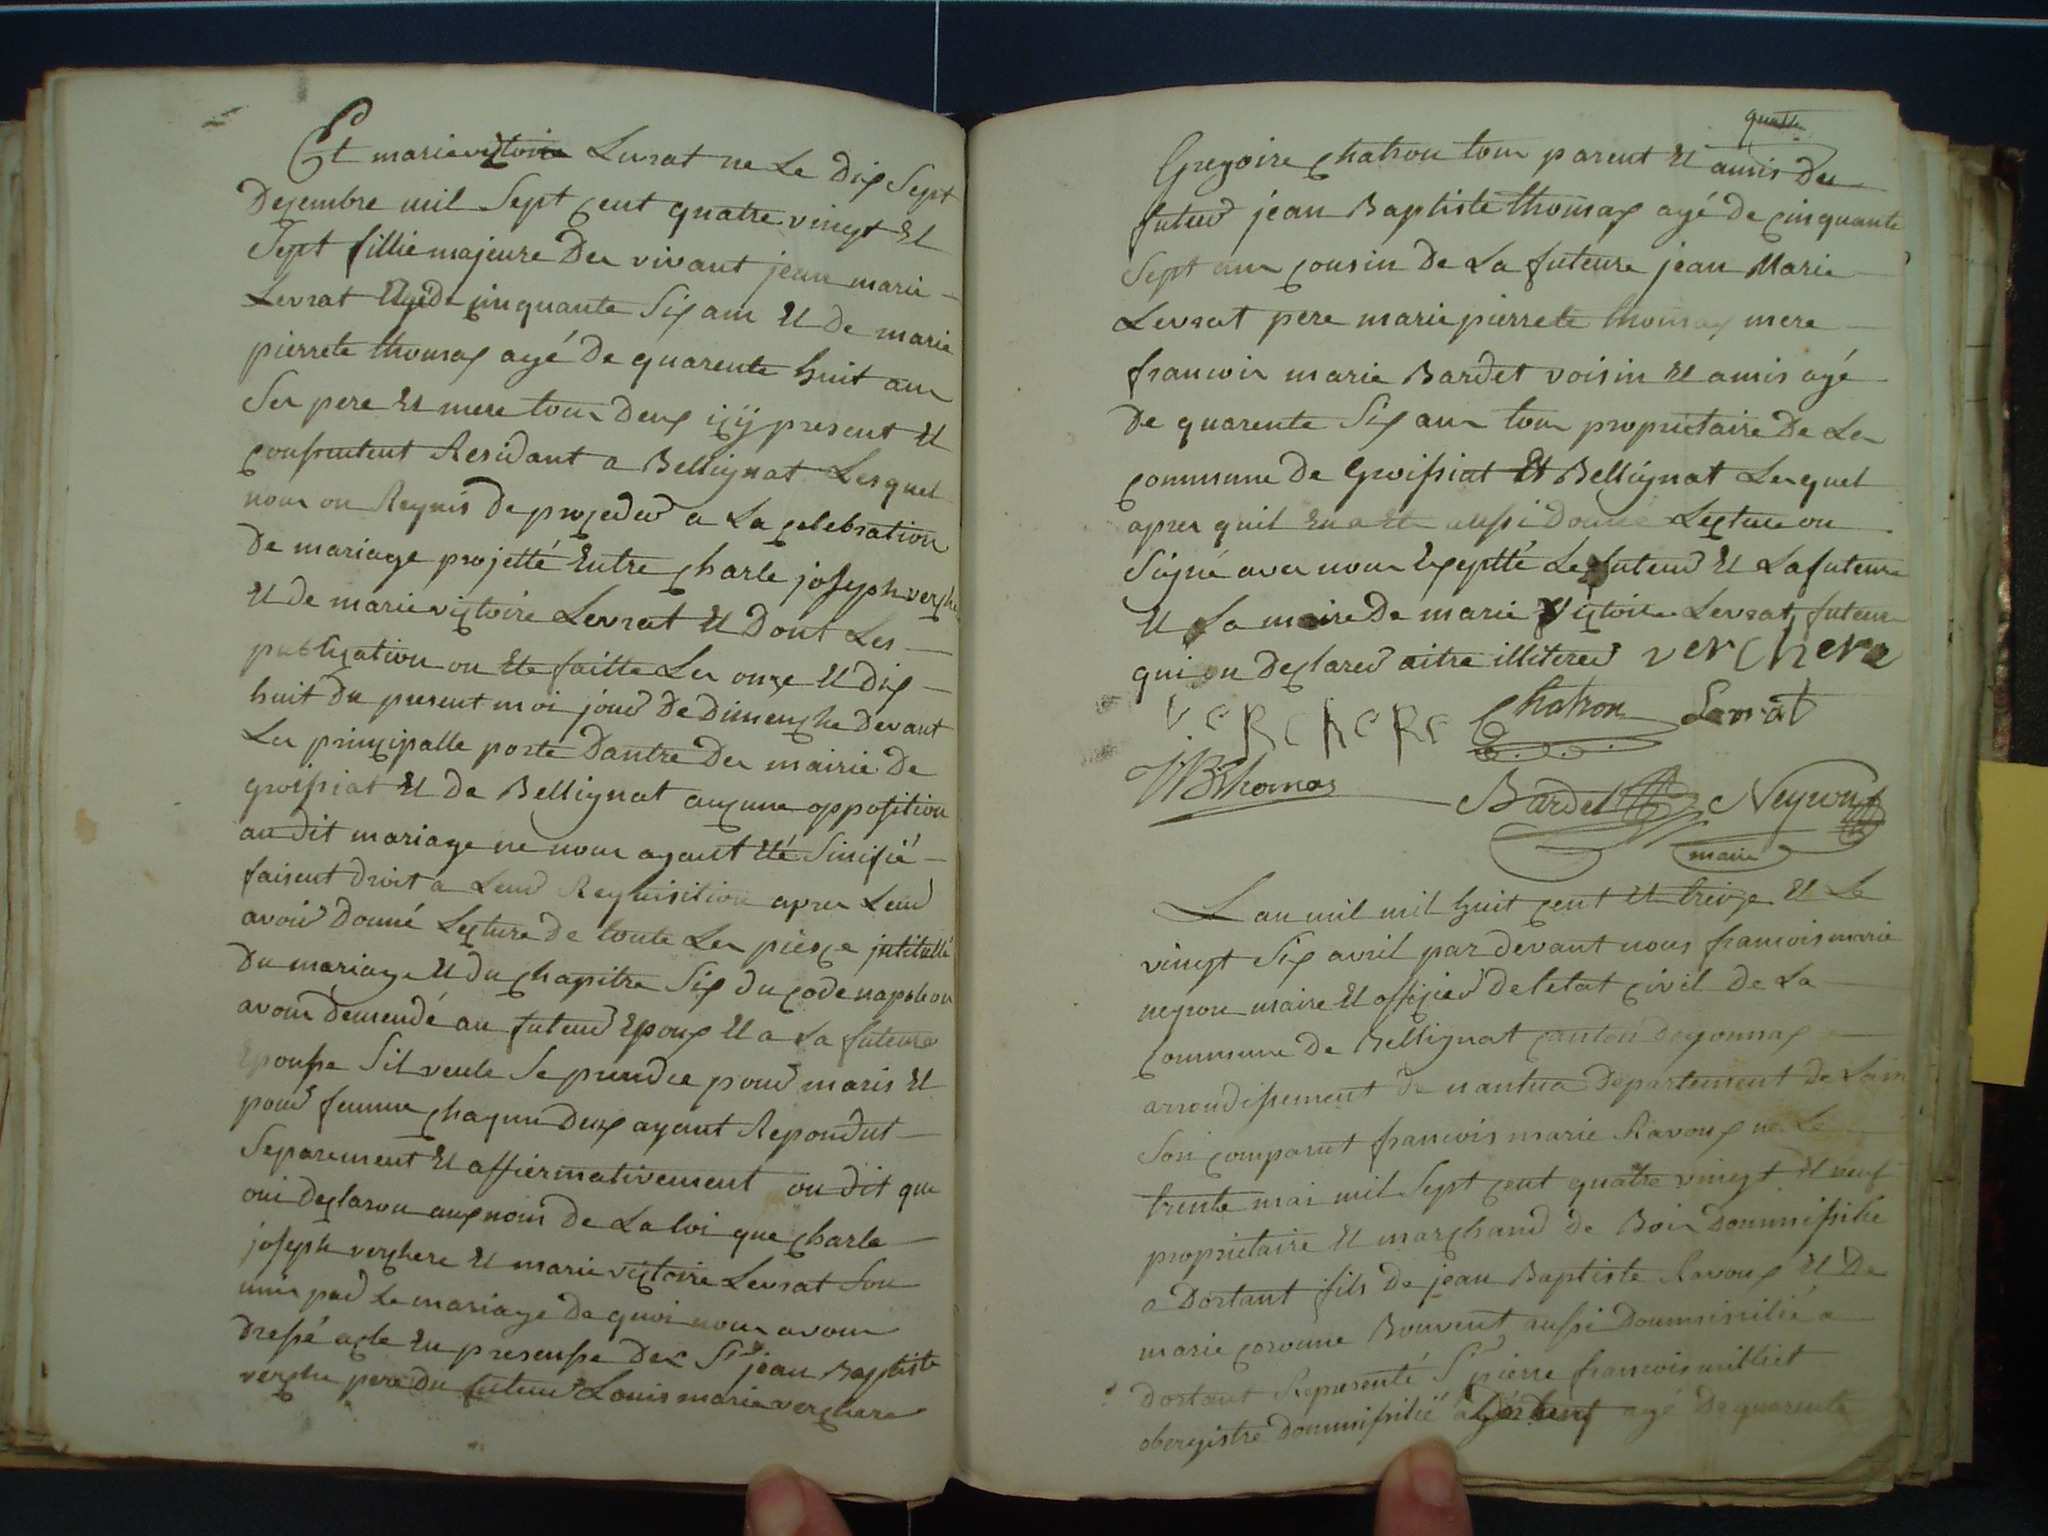 Et marie victoire Levrat ne Le Dix Sept
Decembre mil Sept cent quatre vingt Et
Sept fillie majeure Der vivant jean marie
Levrat Agé de cinquante Six anr Et de marie
pierrete thomax agé de quarente huit anr
Ser pere Et mere tour Deux icÿ present Et
consentent Residant a Bellignat Lesquel
nour on Requis de proceder a La celebration
De mariage projetté Entre charle joseph verche
Et de marie victoire Levrat Et Dont Les
publication on Ete faitte Ler onze Et dix
huit du present moi jour De Dimenche Devant
Ler principalle porte Dantre Der mairie De
groissiat Et De Bellignat aucune opposition
au dit mariage ne nour ayant Eté Sinifié
faisent droit a Leur Requisition aprer Leur
avoir Donné Lecture de toute Ler piesce jntitullé
Du mariage Et du chapitre Six du code napoleon
avour demendé au futeur Epoux Et a La futeure
Epousse Sil veule Se prendre pour maris Et
pour femme chaqun Deux ayant Repondut
Separement Et affiermativement on dit que
oui declaron aux nom De La loi que charle
joseph verchere Et marie victoire Levrat Son
unir par Le mariage De quoi nour avour
Dressé acte En presensse Der Sr jean Baptiste
verche pere du futeur Louis marie verchere
quatre
Gregoire chatron tour parent Et amis Der
futeur jean Baptiste thomax agé de cinquante
Sept anr cousin De La futeure jean Marie
Levrat pere marie pierrete thomax mere
francoir marie Bardet voisin Et amis agé
De quarente Six anr tour proprietaire De Ler
commune de Groissiat Et Bellignat Lerquel
aprer quil En a Ete aussi Donné Lecture on
Signé aver nour Exeptté Le futeur Et La futeure
Et La maire De marie Victoire Levrat futeure
qui on declarer aitre illiterer verchere
verchere Chatron Levrat
JB Thomas Bardet Neyron
maire
Lan mil mil huit cent Et treize Et Le
vingt Six avril par devant nous francois marie
neyron maire Et officier de letat civil De La
commune De Bellignat canton doyonnax
arrondissement De nantua Departement De Lain
Son comparut francois marie Ravoux ne Le
trente mai mil Sept cent quatre vingt Et neuf
proprietaire Et marchand De Boir Dommissilie
a Dortant fils De jean Baptiste Ravoux Et De
marie coronne Bouvent aussi Doumisilié a
Dortant Representé Sr pierre francois milliet
obergistre Doumissilié a Dortent agé De quarente